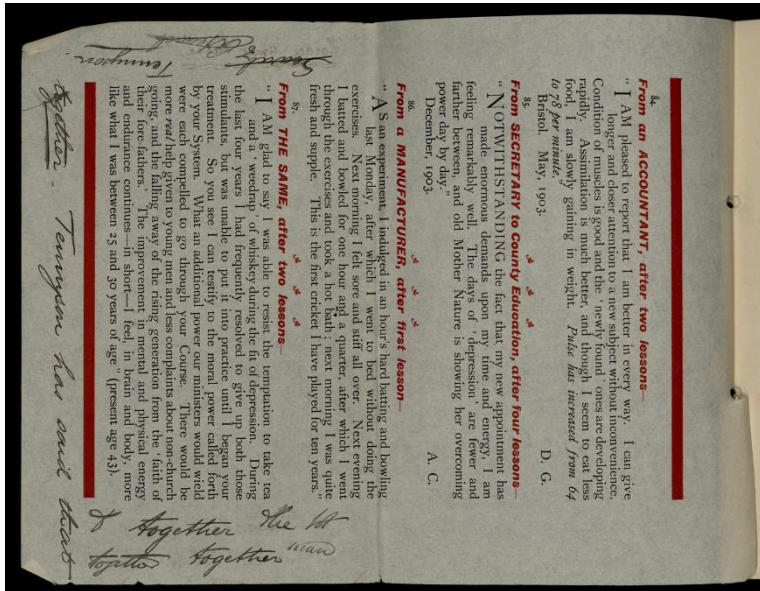 84.
From an ACCOUNTANT, after two lessons—
"I AM pleased to report that I am better in every way. I can give
longer and closer attention to a new subject without inconvenience.
Condition of muscles is good and the 'newly found' ones are developing
rapidly. Assimilation is much better, and though I seem to eat less
food, I am slowly gaining in weight. Pulse has increased from 64
to 78 per minute."
D. G.
Bristol. May, 1903.
85.
From SECRETARY to County Education, after four lessons—
"NOTWITHSTANDING the fact that my new appointment has
made enormous demands upon my time and energy, I am
feeling remarkably well. The days of 'depression' are fewer and
farther between, and old Mother Nature is showing her overcoming
power day by day."
A. C.
December, 1903.
86.
From a MANUFACTURER, after first lesson—
"AS an experiment I indulged in an hour's hard batting and bowling
last Monday, after which I went to bed without doing the
exercises. Next morning I felt sore and stiff all over. Next evening
I batted and bowled for one hour and a quarter, after which I went
through the exercises and took a hot bath; next morning I was quite
fresh and supple. This is the first cricket I have played for ten years."
87.
From THE SAME, after two lessons—
"I AM glad to say I was able to resist the temptation to take tea
and a 'weedrap' of whiskey during the fit of depression. During
the last four years I had frequently resolved to give up both those
stimulants, but was unable to put it into practice until I began your
treatment. So you see I can testify to the moral power called forth
by your System. What an additional power our ministers would wield
were each compelled to go through your Course. There would be
more real help given to young men and less complaints about non-church
going, and the falling away of the rising generation from the 'faith of
their fore-fathers.' The improvement in mental and physical energy
and endurance continues—in short—I feel, in brain and body, more
like what I was between 25 and 30 years of age" (present age 43).
together - Tennyson has said that
Tennyson
& together the
together together man